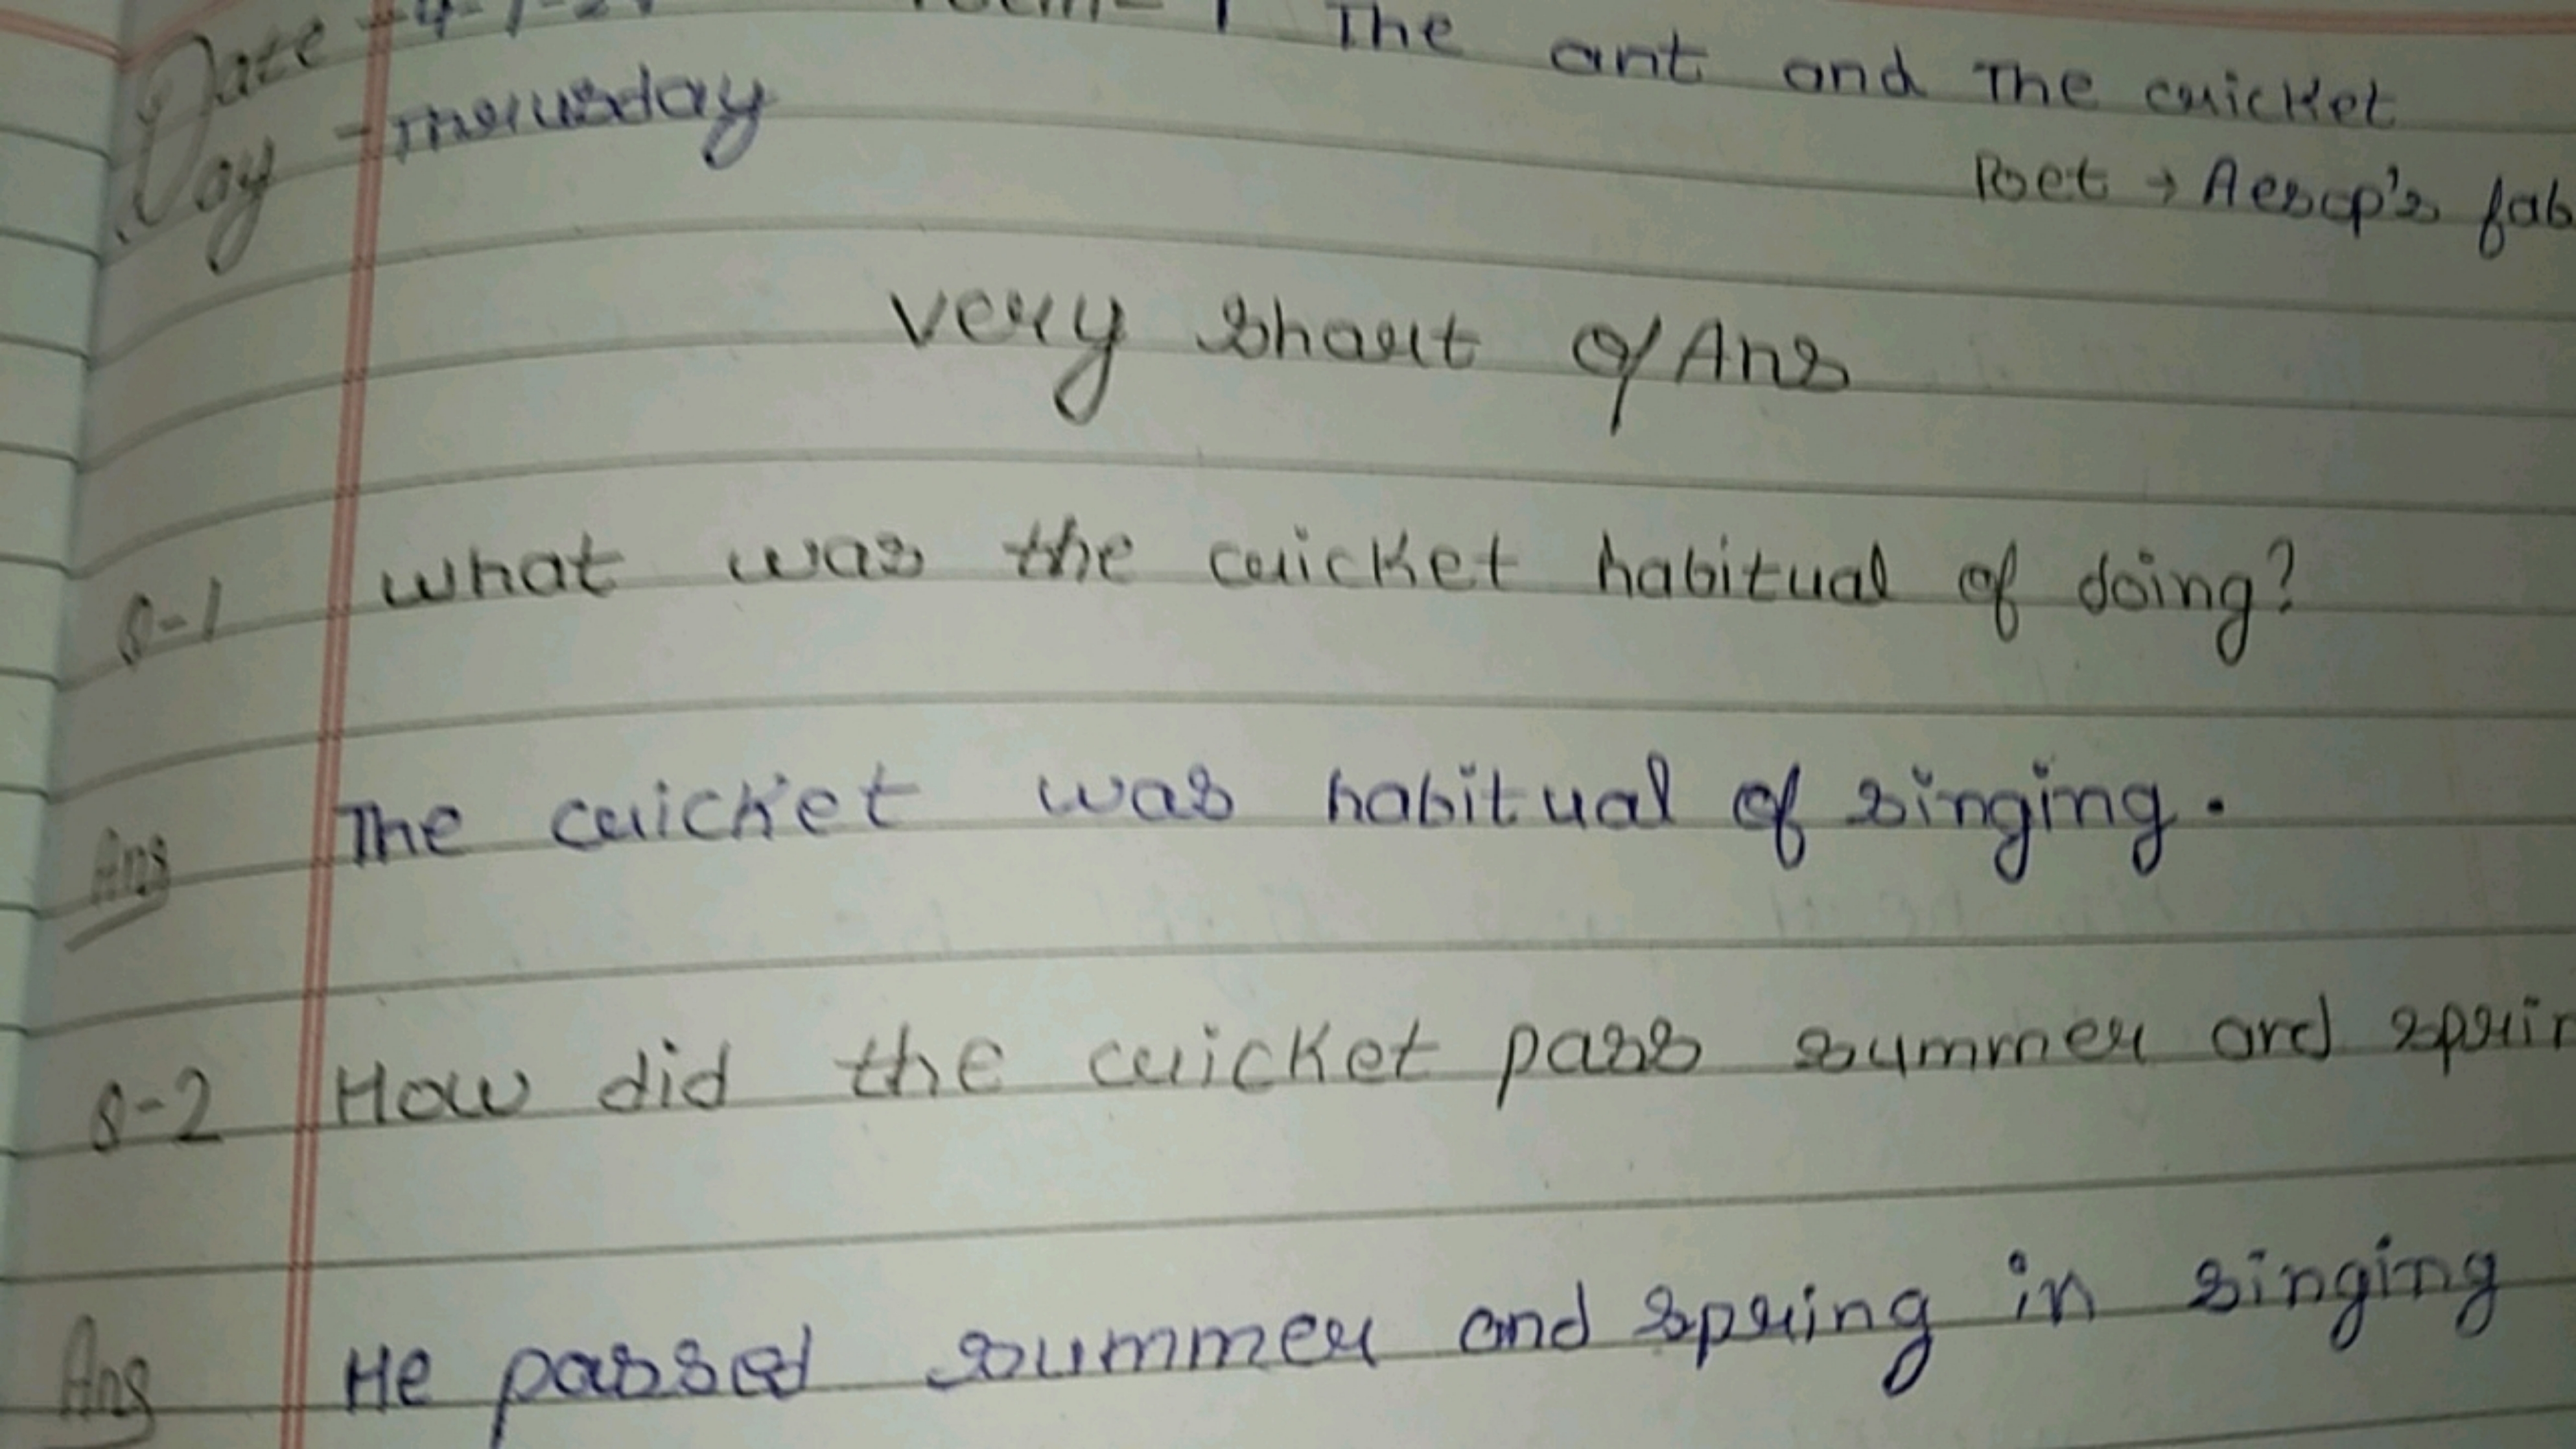 The ant and The cricket
Date
Day - Thursday
Poet → Aesop's fab
very short Q/Ans
Q-1 what was the cricket habitual of doing?
Ans The cricket was habitual of singing.
Q-2 How did the cricket pass summer and sprin
Ans He passed summer and spring in singing